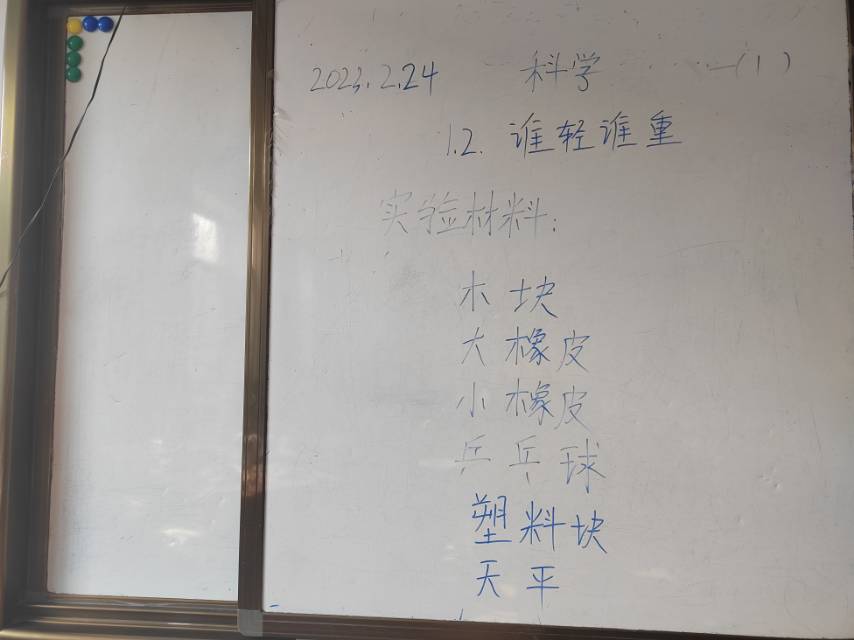 2023.2.24 科学 一(1)
1.2. 谁轻谁重
实验材料:
木块
大橡皮
小橡皮
乒乓球
塑料块
天平